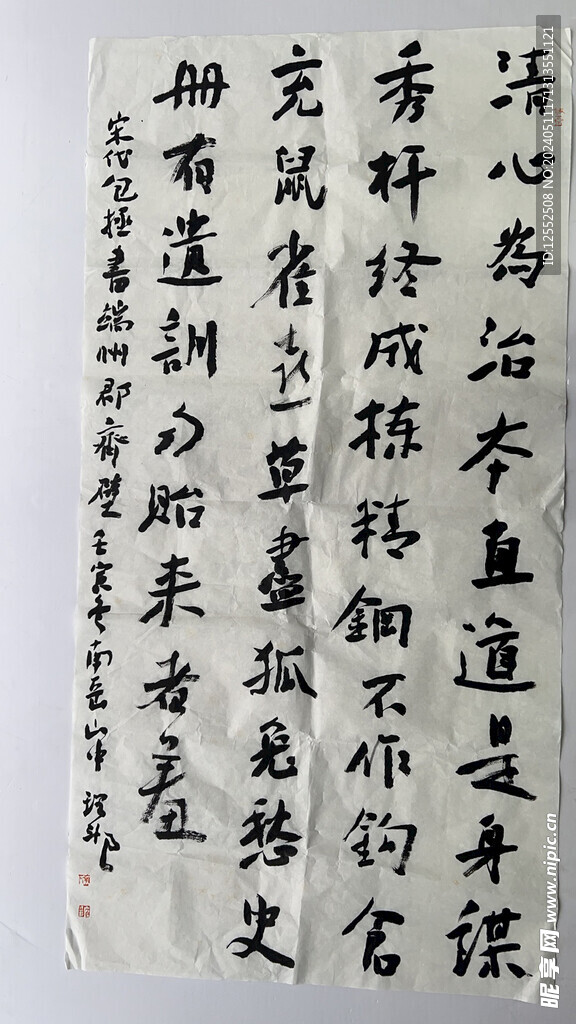 清心為治本直道是身謀
秀杆终成栋精鋼不作鈎倉
充鼠雀喜草盡狐兔愁史
册有遺訓勿貽来者羞
宋代包拯書端州郡齊壁壬寅冬南岳山中
ID:12552508 NO:20240511171313551121
昵享网 www.nipic.cn